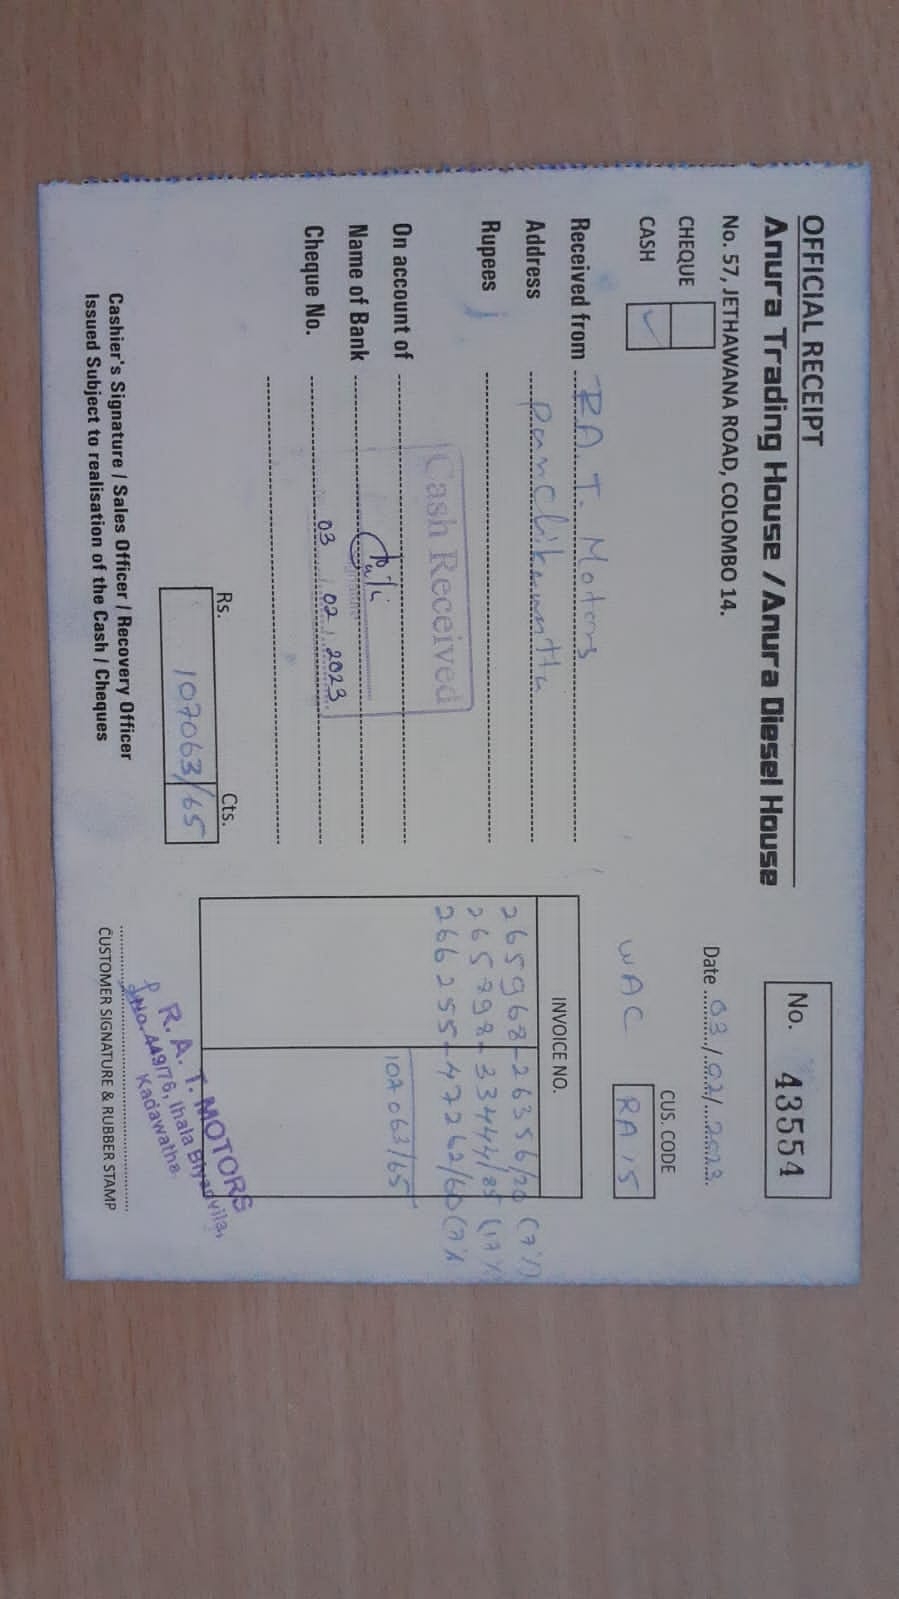 OFFICIAL RECEIPT
Anura Trading House / Anura Diesel House
No. 57, JETHAWANA ROAD, COLOMBO 14.
No. 43554
Date 03/02/2023.
CHEQUE
CASH ✓
WAC
CUS. CODE
RA15
Received from R.A.T. Motors
Address
Rupees
On account of
Name of Bank
Cheque No.
Cash Received
03 02 2023
Rs. Cts.
107063/65
INVOICE NO.
265968-26356/20 (7%)
265798-33444/85 (17%
266255-47262/60 (7%
107063/65
Cashier's Signature / Sales Officer / Recovery Officer
Issued Subject to realisation of the Cash / Cheques
R. A. T. MOTORS
No. 449/76, Ihala
Kadawatha.
CUSTOMER SIGNATURE & RUBBER STAMP